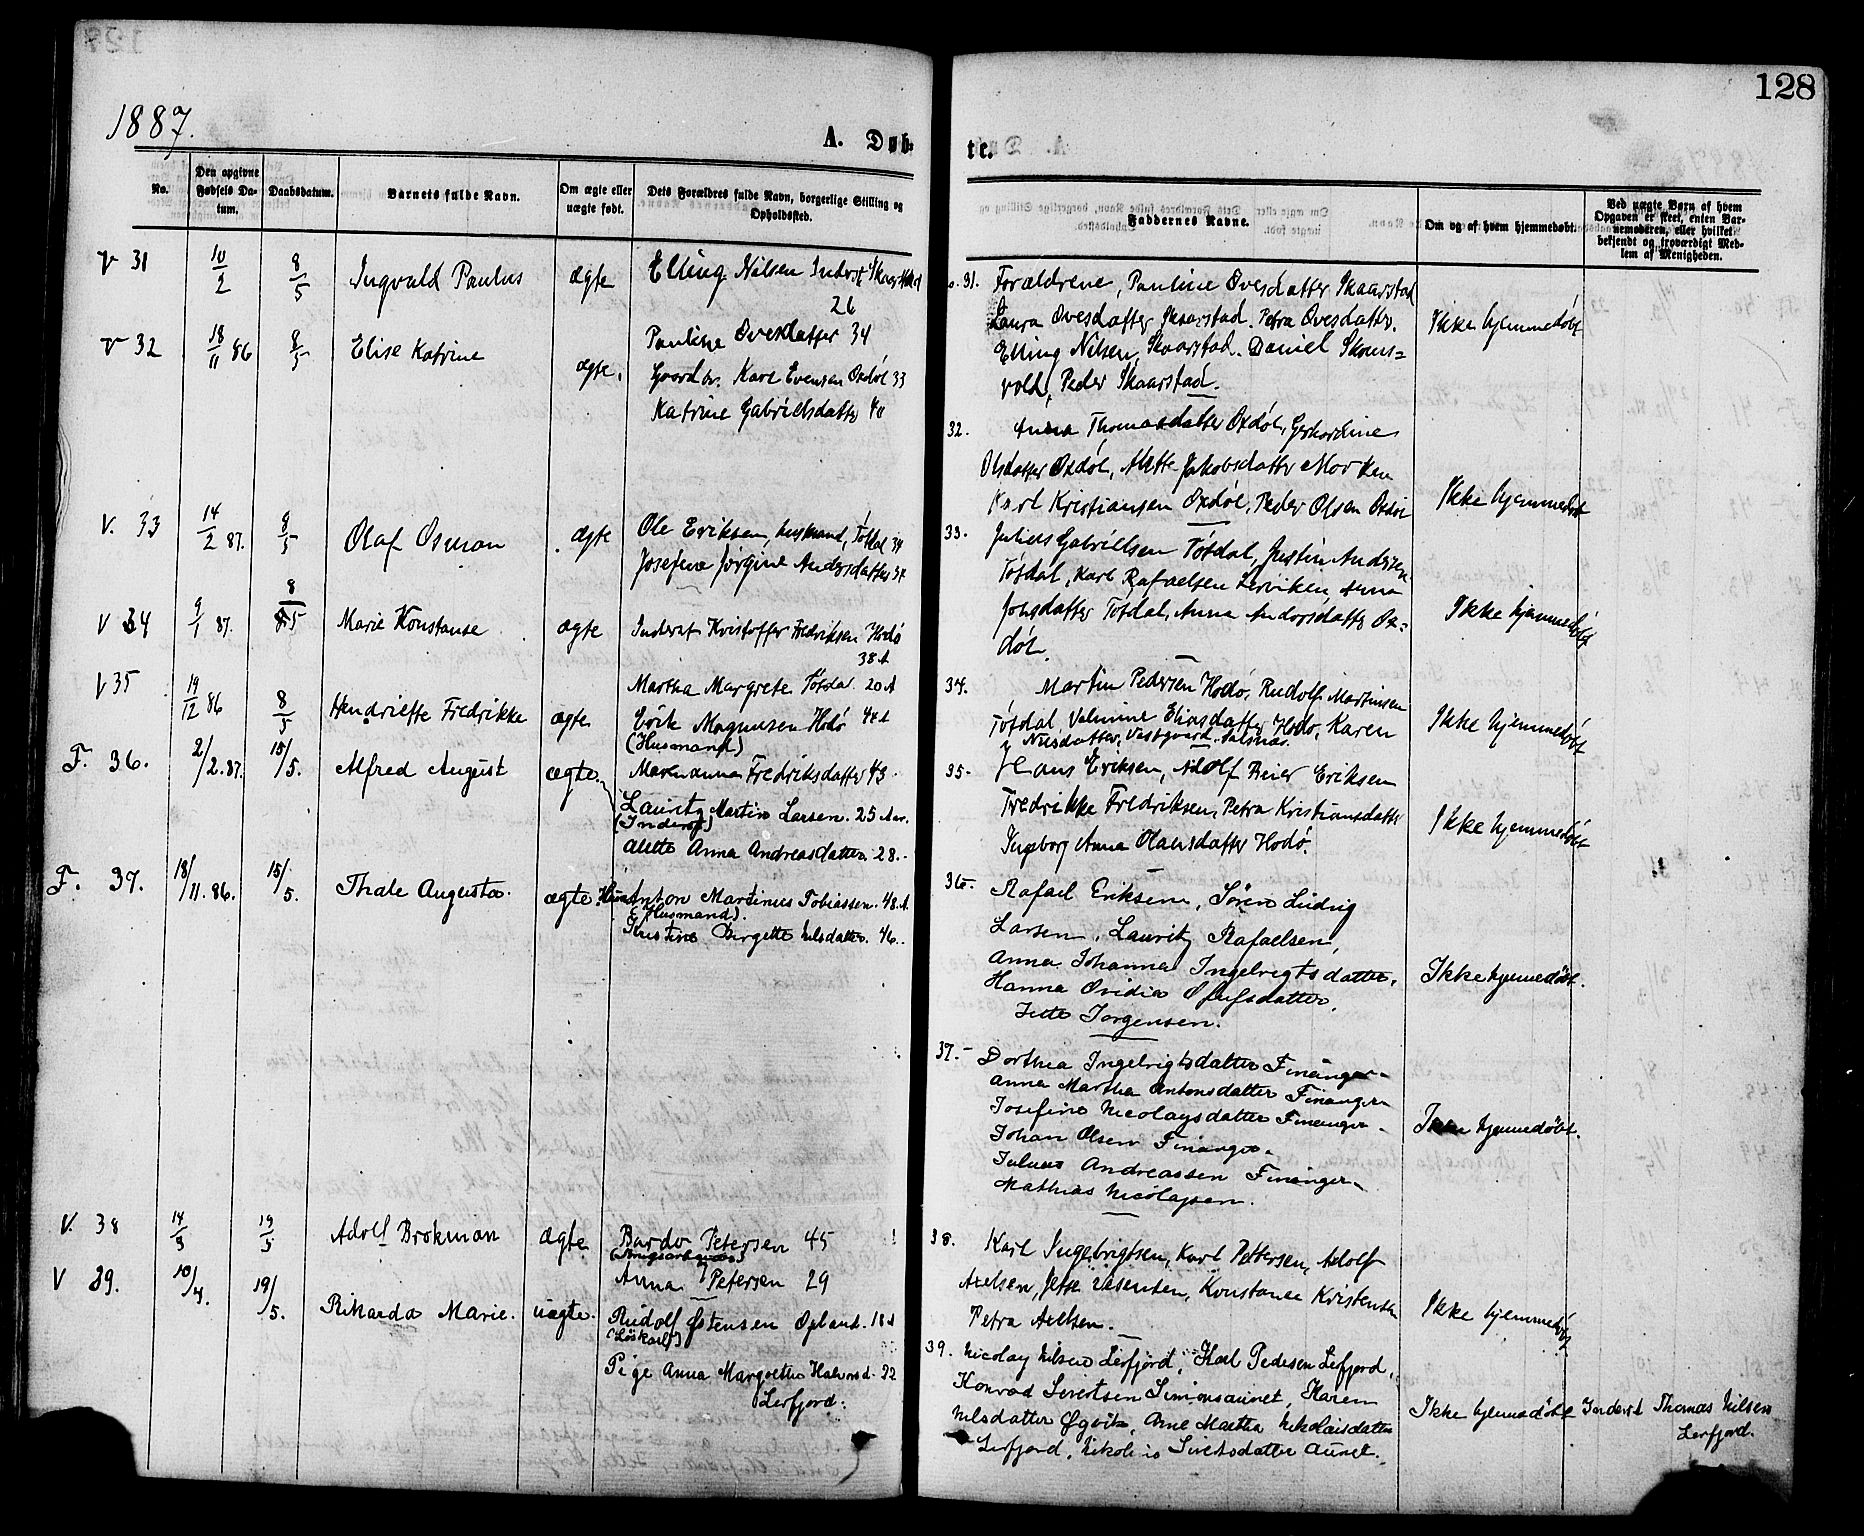 128
1887.
A. Døb-
te.
No.
Den opgivne Fødsels Da-tum.
Daabsdatum.
Barnets fulde Navn.
Om ægte eller uægte født.
Dets Forældres fulde Navn, borgerlige Stilling og Opholdssted.
Faddernes Navne.
Om og af hvem hjemmedøbt.
Ved uægte Børn af hvem Opgaven er skeet, enten Bar-nemoderen, eller hvilket bekjendt og troværdigt Med-lem af Menigheden.
V 31 10/2 8/5 Ingvald Paulus ægte Elling Nilsen Inderst
26
V 32 18/11 86 8/5 Elise Katrine ægte.
Pauline Ovesdatter 34
Gaardbr. Karl Evensen Oxdøl 33
Katrine Gabrielsdatter 40
V. 33 14/2 87. 8/5 Olaf Osman ægte Ole Eriksen, husmand, Tøtdal 34
Josefine Jørgine Andersdatter 37
V 34 9/1 87. 8/5 Marie Konstanse ægte Inderst Kristoffer Fredriksen Hodø
38 A
Martha Margrete Tøtdal 20 A
V 35 19/12 86 8/5 Hendriette Fredrikke ægte Erik Magnusen Hodø 44 A
(Husmand)
Marenanna Fredriksdatter 43
F. 36. 2/2. 87. 15/5. Alfred August ægte
Lauritz Martin Larsen. 25 Aar.
(Inderst)
Alette Anna Andreasdatter. 28.
F. 37. 18/11. 86. 15/5. Thale Augusta. ægte. Anton Martinus Tobiassen. 48. A.
(Husmand).
Kristine Birgette Nilsdatter. 46.
V. 38 14/3 19/5 Adolf Brokman ægte Bardo Petersen 45
Anna Petersen 29
V 39. 10/4. 19/5. Rikarda Marie. uægte. Rudolf Østensen Opland. 18 A
(Løskarl)
Pige Anna Margrethe Halvorsd. 22
Lerfjord.
31. Forældrene, Pauline Ovesdatter Skaarstad
Laura Ovesdatter Skaarstad. Petra Ovesdatter.
Elling Nilsen, Skaarstad. Daniel Skoms=
vold, Peder Skaarstad.
Ikke hjemmedøbt
32. Anna Thomasdatter Oxdøl, Gerhardine
Olsdatter Oxdøl, Alette Jakobsdatter Morken
Karl Kristiansen Oxdøl, Peder Olsen Oxdøl
Ikke hjemmedøbt
33. Julius Gabrielsen Tøtdal, Justin Andersen
Tøtdal, Karl Rafaelsen Lerviken, Anna
Jonsdatter Tøtdal, Anna Andorsdatter Ox=
døl.
Ikke hjemmedøbt
34. Martin Pedersen Hodø, Rudolf Martinsen
Tøtdal Valmine Eliasdatter Hodø, Karen
Nilsdatter, Vestgaard. Salsnæs.
Ikke hjemmedøbt
35. Hans Eriksen, Adolf Beier Eriksen
Fredrikke Fredriksen, Petra Kristiansdatter
Ingeborg Anna Olausdatter Hodø.
Ikke hjemmedøbt
36. Rafael Eriksen, Søren Ludvig
Larsen, Lauritz Rafaelsen,
Anna Johanna Ingebrigtsdatter,
Hanna Ovidia Olufsdatter,
Jette Jørgensen.
Ikke hjemmedøbt.
37. Dorthea Ingebrigtsdatter Finanger
Anna Martha Antonsdatter Finanger
Josefine Nicolaysdatter Finanger
Johan Olsen Finanger
Julius Andreassen Finanger
Mathias Nicolaysen.
Ikke hjemmedøbt.
38. Karl Ingebrigtsen, Karl Pettersen, Adolf
Axelsen, Jette Konstanse Kristensen
Petra Axelsen.
Ikke hjemmedøbt
39. Nicolay Nilsen Lerfjord, Karl Pedersen Lerfjord,
Konrad Sivertsen Simonsaunet, Karen
Nilsdatter Øgvik, Ane Martha Nikolaisdatter
Lerfjord, Nikoline Sivertsdatter Aunet.
Ikke hjemmedøbt Inderst Thomas Nilsen
Lerfjord.